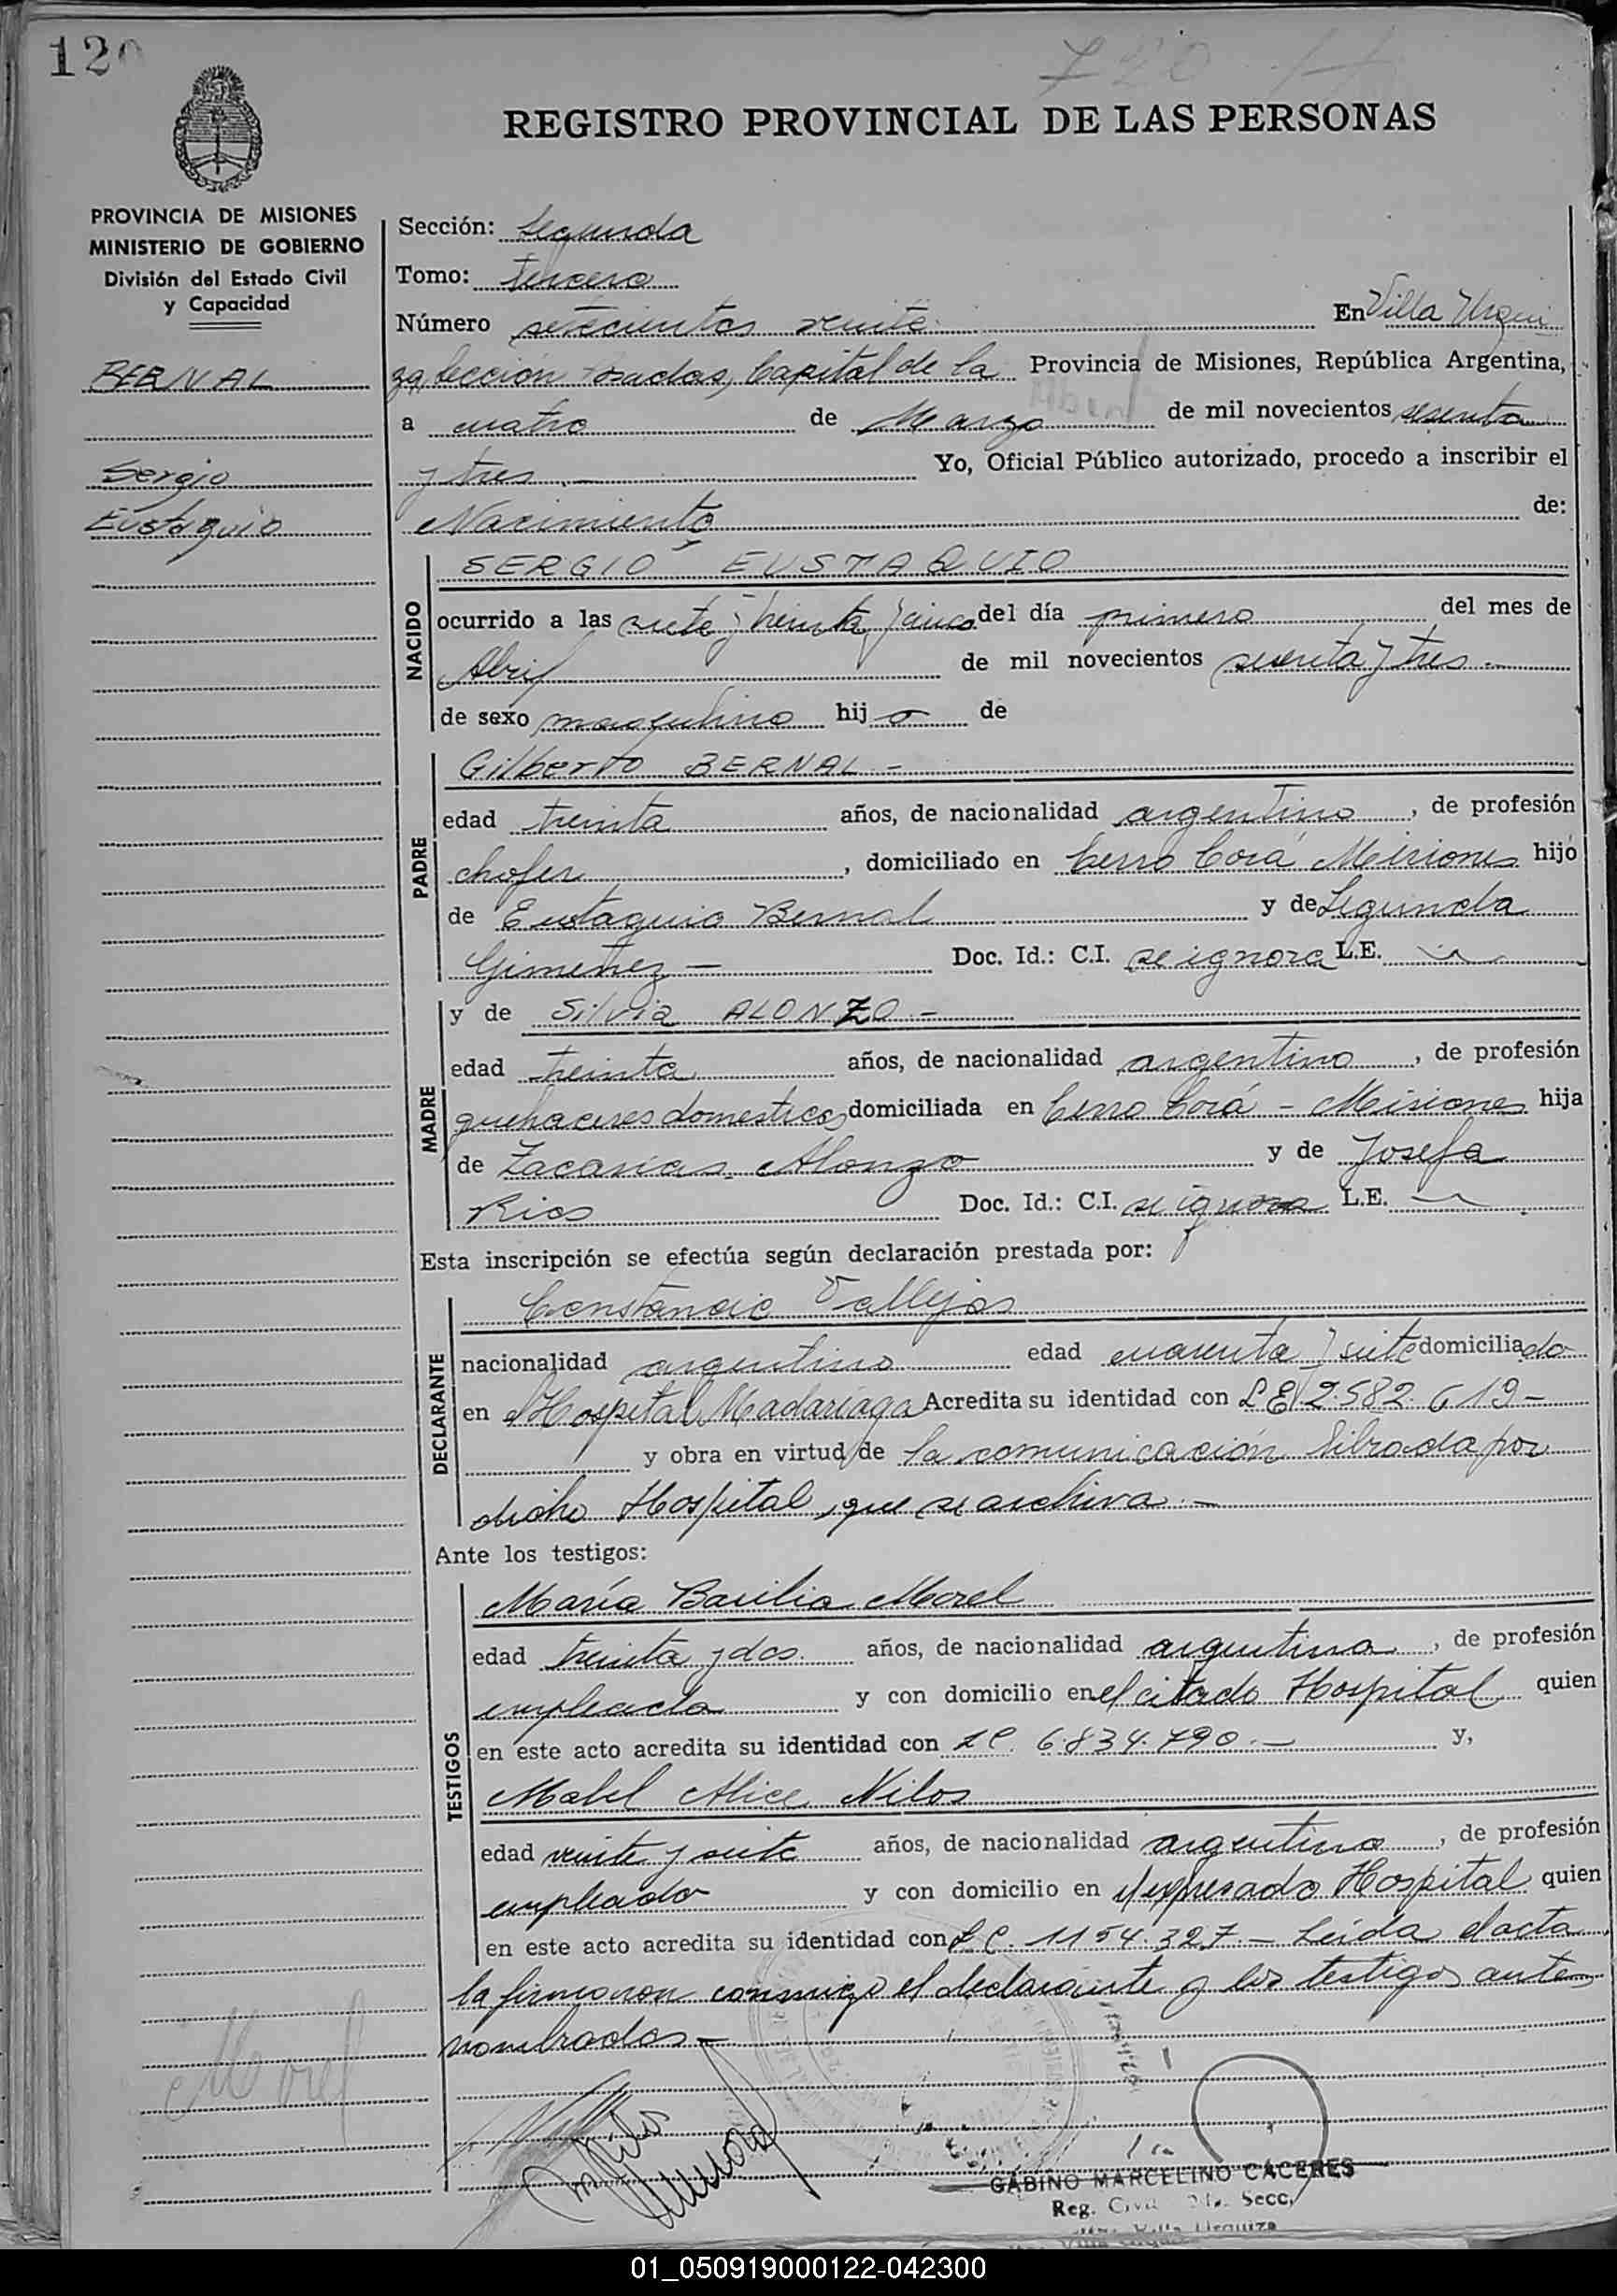 120
720
REGISTRO PROVINCIAL DE LAS PERSONAS
PROVINCIA DE MISIONES
MINISTERIO DE GOBIERNO
División del Estado Civil
y Capacidad
BERNAL
Sergio
Eustaquio
Sección: Segunda
Tomo: tercero
Número setecientos veinte En Villa Urqui
za, Sección Posadas, Capital de la Provincia de Misiones, República Argentina,
a cuatro de Marzo de mil novecientos sesenta
y tres.- Yo, Oficial Público autorizado, procedo a inscribir el
Nacimiento de:
NACIDO
SERGIO EUSTAQUIO
ocurrido a las siete y treinta y cinco del día primero del mes de
Abril de mil novecientos sesenta y tres.-
de sexo masculino hijo de
PADRE
Gilberto BERNAL.-
edad treinta años, de nacionalidad argentino, de profesión
chofer, domiciliado en Cerro Corá Misiones hijo
de Eustaquio Bernal y de Segunda
Gimenez - Doc. Id.: C.I. se ignora L.E.
MADRE
y de Silvia ALONZO.-
edad treinta años, de nacionalidad argentina, de profesión
quehaceres domesticos domiciliada en Cerro Corá - Misiones hija
de Zacarias Alonzo y de Josefa
Rios Doc. Id.: C.I. se ignora L.E.
Esta inscripción se efectúa según declaración prestada por:
DECLARANTE
Constancio Vallejos
nacionalidad argentino edad cuarenta y siete domiciliado
en el Hospital Madariaga Acredita su identidad con L.E. 2.582.619-
y obra en virtud de la comunicación librada por
dicho Hospital, que se archiva.-
Ante los testigos:
TESTIGOS
María Basilia Morel
edad treinta y dos. años, de nacionalidad argentina, de profesión
empleada y con domicilio en el citado Hospital quien
en este acto acredita su identidad con L.C. 6.834.790.- y,
Mabel Alice Nilos
edad veinte y siete años, de nacionalidad argentina, de profesión
empleada y con domicilio en el expresado Hospital quien
en este acto acredita su identidad con L.C. 1154.327.- Leída el acta
la firmaron conmigo el declarante y los testigos ante
nombrados.-
Morel
GABINO MARCELINO CÁCERES
Reg. Civil Secc,
Villa Urquiza
01_050919000122-042300